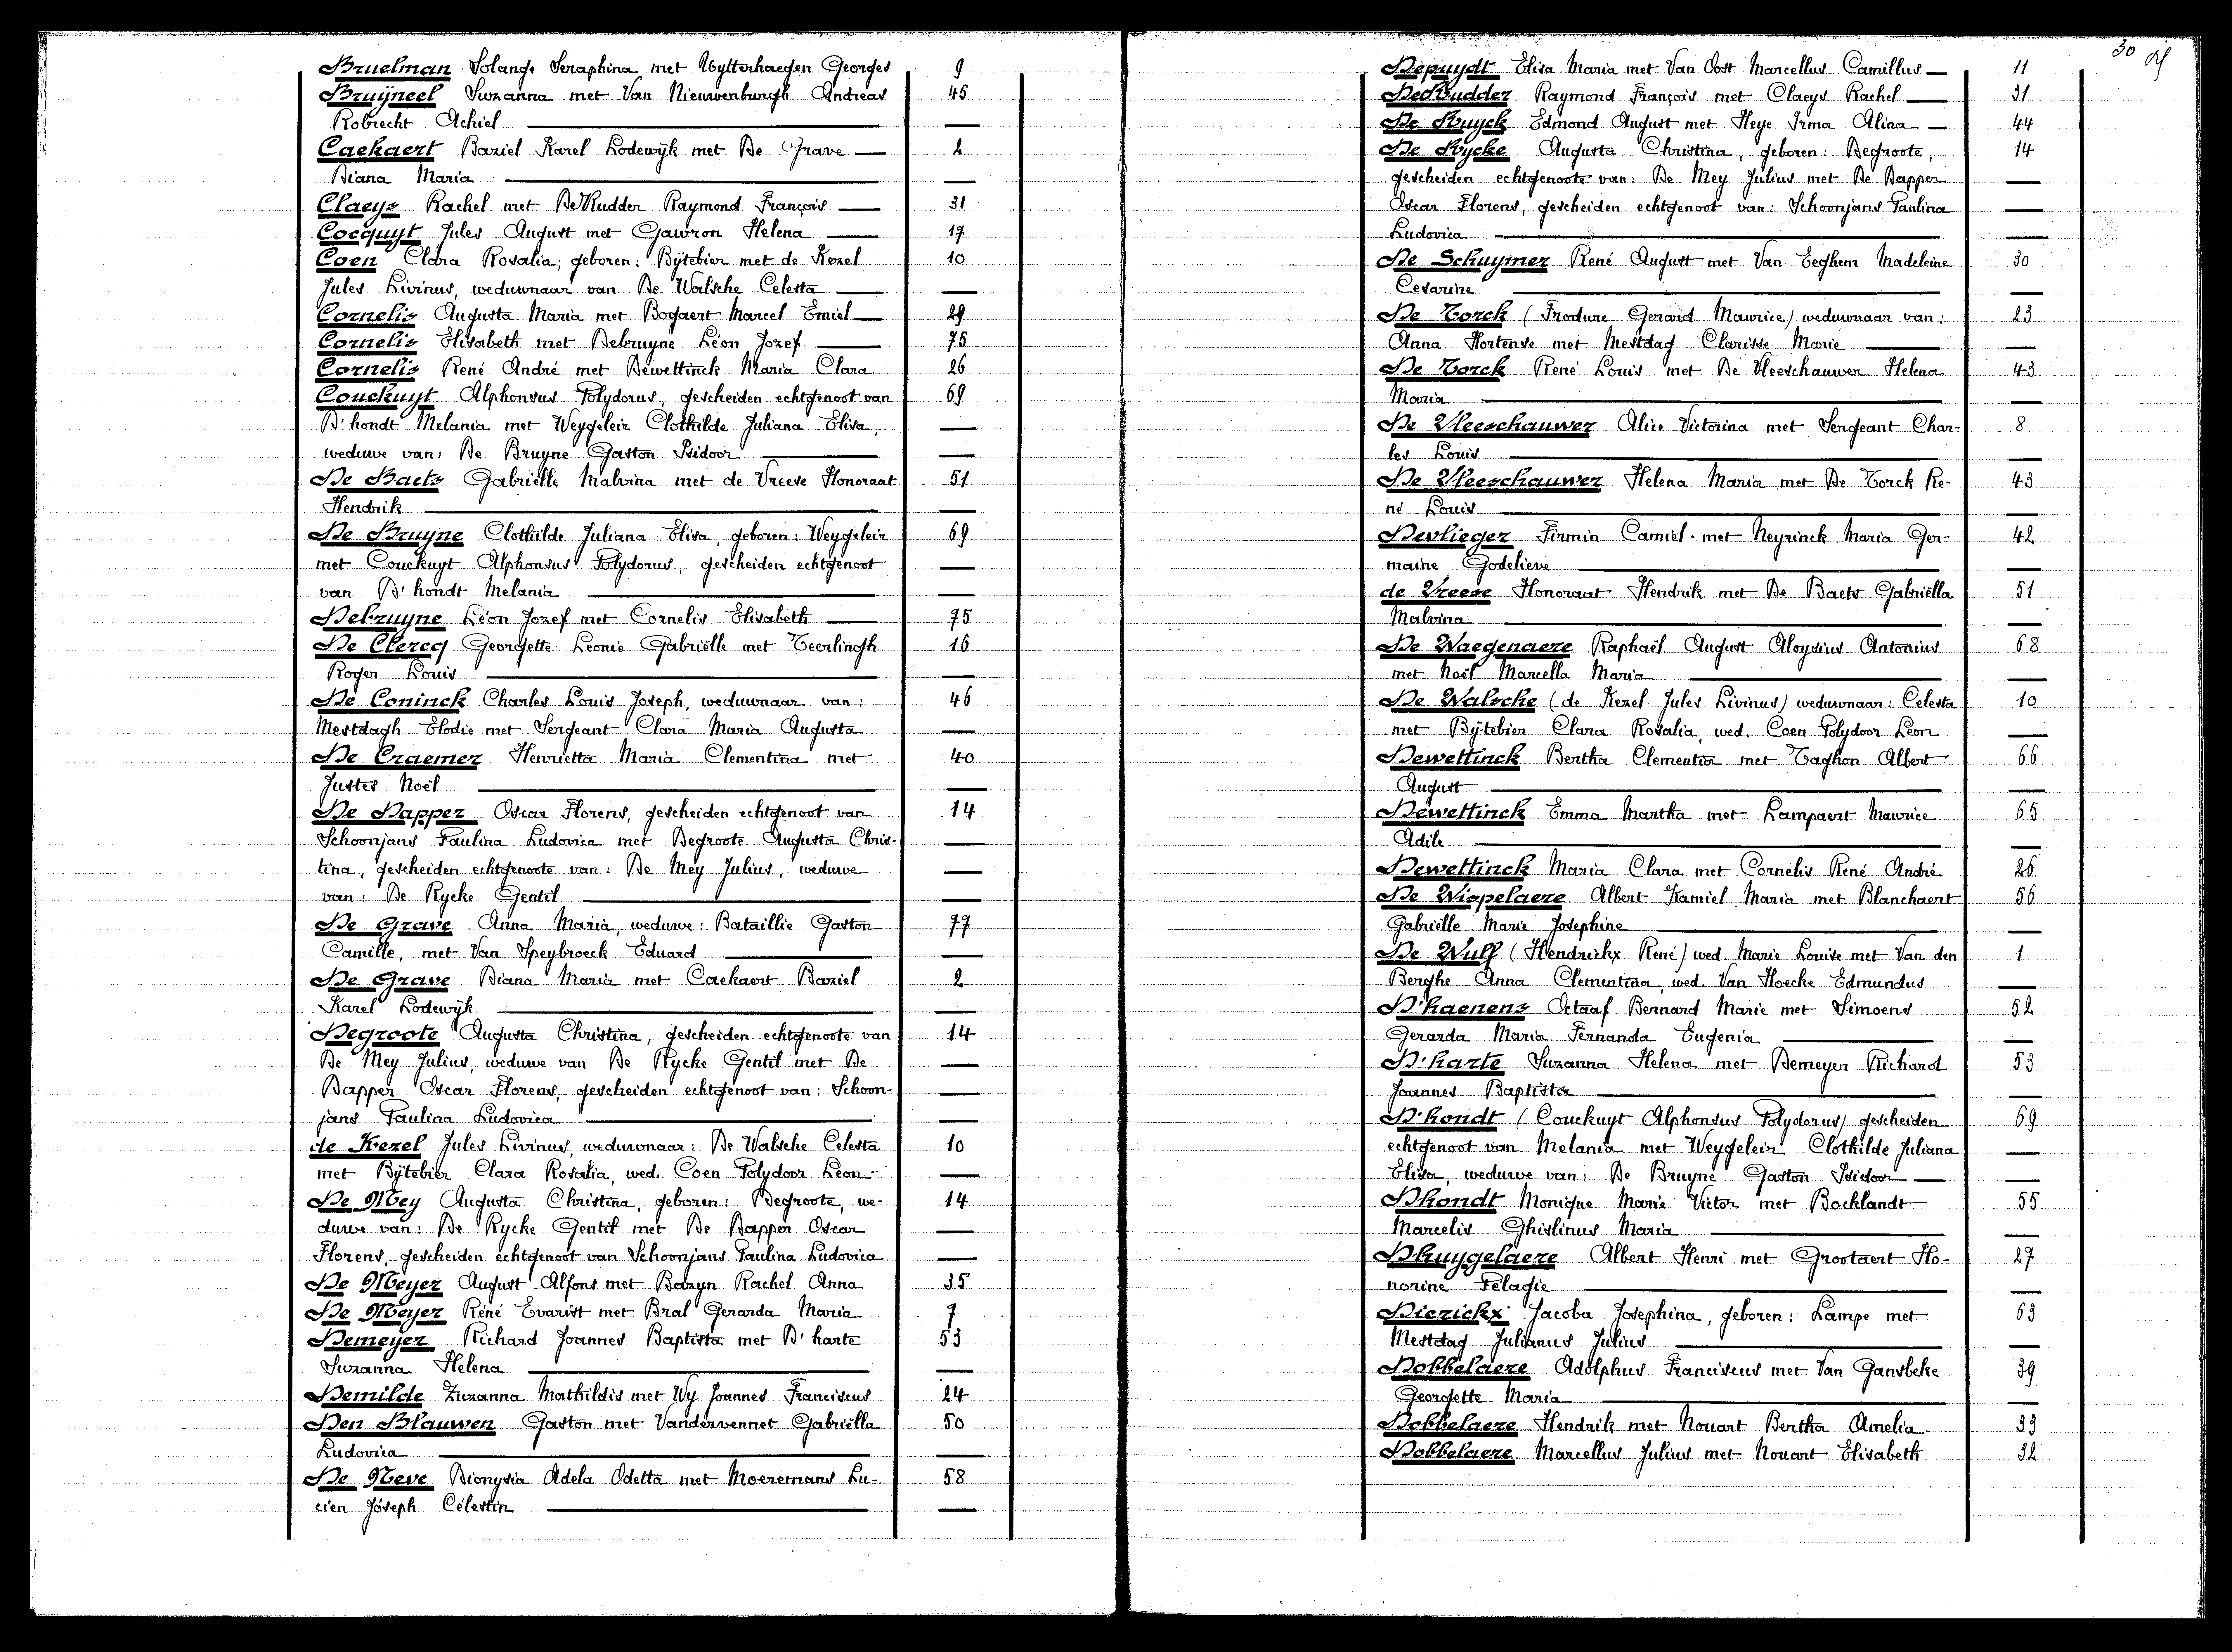 Bruelman Solange Seraphina met Uytterhaegen Georges 9
Bruijneel Suzanna met Van Nieuwenburgh Andreas 45
Robrecht Achiel —
Caekaert Baziel Karel Lodewijk met De Grave — 2
Diana Maria —
Claeys Rachel met DeRudder Raymond François — 31
Cocquyt Jules August met Gawron Helena — 17
Coen Clara Rosalia, geboren: Bÿtebier met de Kezel 10
Jules Livinus, weduwnaar van De Walsche Celesta —
Cornelis Augusta Maria met Bogaert Marcel Emiel — 29
Cornelis Elisabeth met Debruyne Léon Jozef — 75
Cornelis René André met Dewettinck Maria Clara 26
Couckuyt Alphonsus Polydorus, gescheiden echtgenoot van 69
D'hondt Melania met Weygeleir Clothilde Juliana Elisa, —
weduwe van: De Bruyne Gaston Isidoor —
De Baets Gabriëlle Malvina met de Vreese Honoraat 51
Hendrik —
De Bruyne Clothilde Juliana Elisa, geboren: Weygeleir 69
met Couckuyt Alphonsus Polydorus, gescheiden echtgenoot —
van D'hondt Melania —
Debruyne Léon Jozef met Cornelis Elisabeth — 75
De Clercq Georgette Leonie Gabriëlle met Teerlingh 16
Roger Louis —
De Coninck Charles Louis Joseph, weduwnaar van: 46
Mestdagh Elodie met Sergeant Clara Maria Augusta —
De Craemer Henrietta Maria Clementina met 40
Justes Noël —
De Dapper Oscar Florens, gescheiden echtgenoot van 14
Schoonjans Paulina Ludovica met Degroote Augusta Chris- —
tina, gescheiden echtgenoote van: De Mey Julius, weduwe —
van: De Rycke Gentil —
De Grave Anna Maria, weduwe: Bataillie Gaston 77
Camille, met Van Speybroeck Eduard —
De Grave Diana Maria met Caekaert Baziel 2
Karel Lodewijk —
Degroote Augusta Christina, gescheiden echtgenoote van 14
De Mey Julius, weduwe van De Rycke Gentil met De —
Dapper Oscar Florens, gescheiden echtgenoot van: Schoon- —
jans Paulina Ludovica —
de Kezel Jules Livinus, weduwnaar: De Walsche Celesta 10
met Bÿtebier Clara Rosalia, wed. Coen Polydoor Leon —
De Mey Augusta Christina, geboren: Degroote, we- 14
duwe van: De Rycke Gentil met De Dapper Oscar —
Florens, gescheiden echtgenoot van Schoonjans Paulina Ludovica —
De Meyer August Alfons met Bazyn Rachel Anna 35
De Meyer Réné Evarist met Bral Gerarda Maria 7
Demeyer Richard Joannes Baptista met D'harte 53
Suzanna Helena —
Demilde Zuzanna Mathildis met Wy Joannes Franciscus 24
Den Blauwen Gaston met Vandervennet Gabriëlla 50
Ludovica —
De Neve Dionysia Adela Odetta met Moeremans Lu- 58
cien Joseph Célestin —
30
Depuydt Elisa Maria met Van Oost Marcellus Camillus — 11
DeRudder Raymond François met Claeys Rachel — 31
De Ruyck Edmond August met Heye Irma Alina — 44
De Rycke Augusta Christina, geboren: Degroote, 14
gescheiden echtgenoote van: De Mey Julius met De Dapper —
Oscar Florens, gescheiden echtgenoot van: Schoonjans Paulina —
Ludovica —
De Schuymer René August met Van Eeghem Madeleine 30
Cesarine —
De Torck (Frodure Gerard Maurice) weduwnaar van: 23
Anna Hortense met Mestdag Clarisse Marie —
De Torck René Louis met De Vleeschauwer Helena 43
Maria —
De Vleeschauwer Alice Victorina met Sergeant Char- 8
les Louis —
De Vleeschauwer Helena Maria met De Torck Re- 43
né Louis —
Devlieger Firmin Camiel met Neyrinck Maria Ger- 42
maine Godelieve —
de Vreese Honoraat Hendrik met De Baets Gabriëlla 51
Malvina —
De Waegenaere Raphaël August Aloysius Antonius 68
met Noël Marcella Maria —
De Walsche (de Kezel Jules Livinus) weduwnaar: Celesta 10
met Bÿtebier Clara Rosalia, wed. Coen Polydoor Leon —
Dewettinck Bertha Clementia met Taghon Albert 66
August —
Dewettinck Emma Martha met Lampaert Maurice 65
Adile —
Dewettinck Maria Clara met Cornelis René André 26
De Wispelaere Albert Kamiel Maria met Blanchaert 56
Gabriëlle Marie Josephine —
De Wulf (Hendrickx René) wed. Marie Louise met Van den 1
Berghe Anna Clementina, wed. Van Hoecke Edmundus —
D'haenens Octaaf Bernard Marie met Simoens 52
Gerarda Maria Fernanda Eugenia —
D'harte Suzanna Helena met Demeyer Richard 53
Joannes Baptista —
D'hondt (Couckuyt Alphonsus Polydorus) gescheiden 69
echtgenoot van Melania met Weygeleir Clothilde Juliana —
Elisa, weduwe van: De Bruyne Gaston Isidoor — —
Dhondt Monique Marie Victor met Bocklandt 55
Marcelis Ghislinus Maria —
Dhuygelaere Albert Henri met Grootaert Ho- 27
norine Pelagie —
Dierickx Jacoba Josephina, geboren: Lampe met 63
Mestdag Julianus Julius —
Dobbelaere Adolphus Franciscus met Van Gansbeke 39
Georgette Maria —
Dobbelaere Hendrik met Nouart Bertha Amelia 33
Dobbelaere Marcellus Julius met Nouart Elisabeth 32